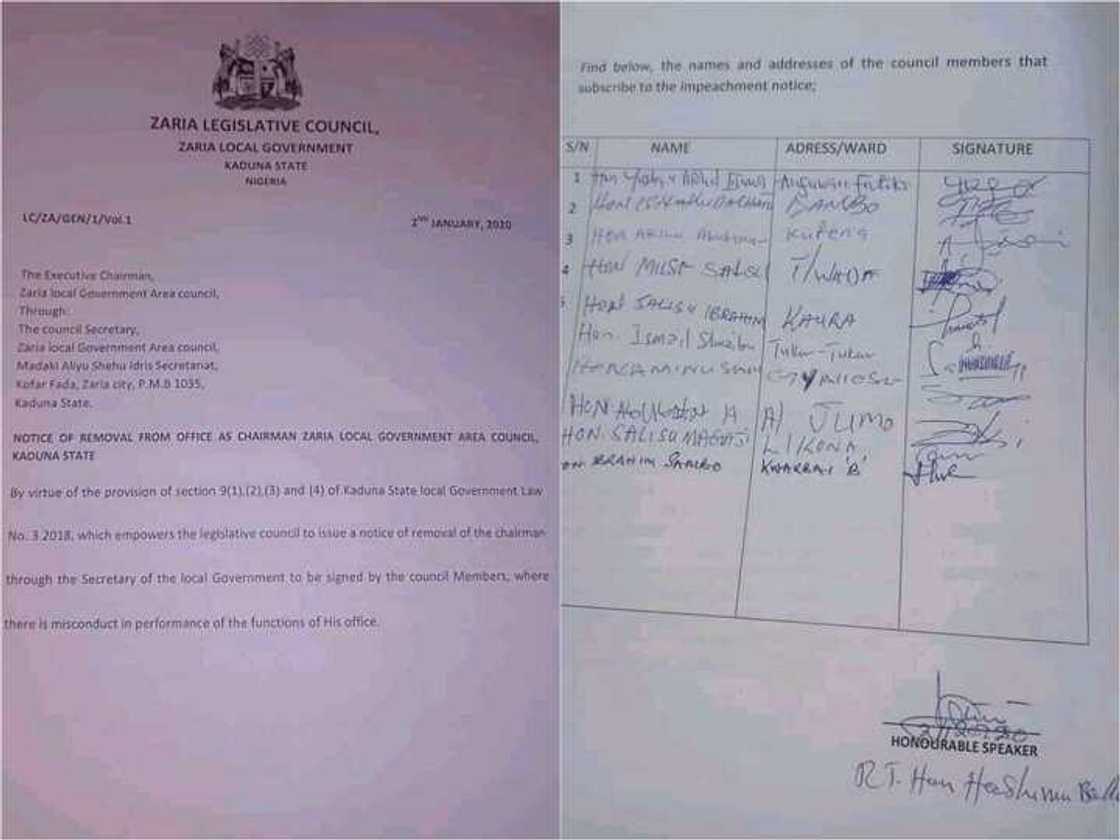 ZARIA LEGISLATIVE COUNCIL,
ZARIA LOCAL GOVERNMENT
KADUNA STATE
NIGERIA
LC/ZA/GEN/1/Vol.1
2ND JANUARY, 2020
The Executive Chairman,
Zaria local Government Area council,
Through:
The council Secretary,
Zaria local Government Area council,
Madaki Aliyu Shehu Idris Secretariat,
Kofar Fada, Zaria city, P.M.B 1035,
Kaduna State.
NOTICE OF REMOVAL FROM OFFICE AS CHAIRMAN ZARIA LOCAL GOVERNMENT AREA COUNCIL,
KADUNA STATE
By virtue of the provision of section 9(1),(2),(3) and (4) of Kaduna State local Government Law
No. 3 2018, which empowers the legislative council to issue a notice of removal of the chairman
through the Secretary of the local Government to be signed by the council Members, where
there is misconduct in performance of the functions of His office.
Find below, the names and addresses of the council members that
subscribe to the impeachment notice;
S/N NAME ADRESS/WARD SIGNATURE
1 Hon
2 Hon DAMBO
3 HON Kufena
4 HON MUSA SALSU T/WADA
5 Hon SALISU IBRAHIM KAURA
Hon. Ismail Shuaibu Tukur-Tukur
HON AMINU
HON A/ JUMO
HON. SALISU MAGAJI LIKORA
IBRAHIM SAMBO KWARBAI 'B'
HONOURABLE SPEAKER
RT. Hon Hashimu